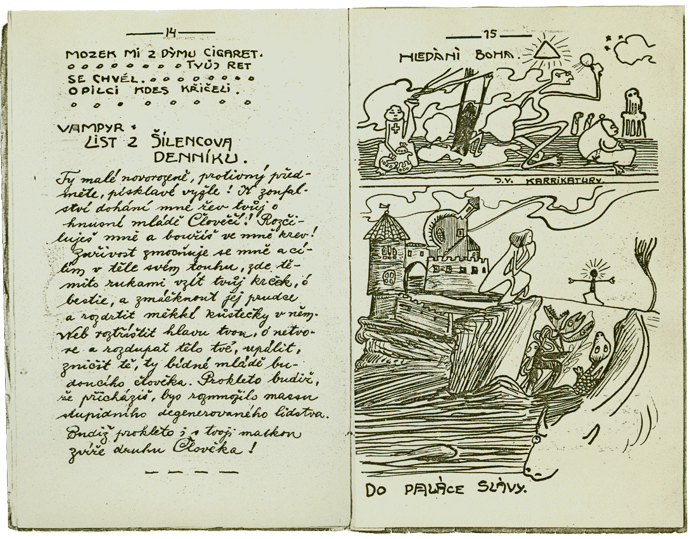 14
MOZEK MI Z DÝMU CIGARET.
TVŮJ RET
SE CHVĚL.
OPILCI KDES KŘIČELI.
VAMPYR.
LIST Z ŠÍLENCOVA
DENNÍKU.
Ty malé novorozeně, protivný před-
měte, pisklavé vyžle! K zoufal-
ství dohání mně řev tvůj o
hnusné mládě Člověčí! Rozči-
luješ mně a bouříš ve mně krev!
Zuřivost zmocňuje se mně a cí-
tím v těle svém touhu, zde tě-
mito rukami vzít tvůj krček, ó
bestie, a zmáčknout jej prudce
a rozdrtit měkké kůstečky v něm.
Neb roztříštit hlavu tvou, ó netvo-
re a rozdupat tělo tvé, upálit,
zničit tě, ty bídné mládě bu-
doucího člověka. Prokleto budiž,
že přicházíš, bys rozmnožilo massu
stupidního degenerovaného lidstva.
Budiž prokleto i s tvojí matkou
zvíře druhu Člověka!
15
HLEDÁNÍ BOHA.
J.V. KARRIKATURY.
DO PALÁCE SLÁVY.